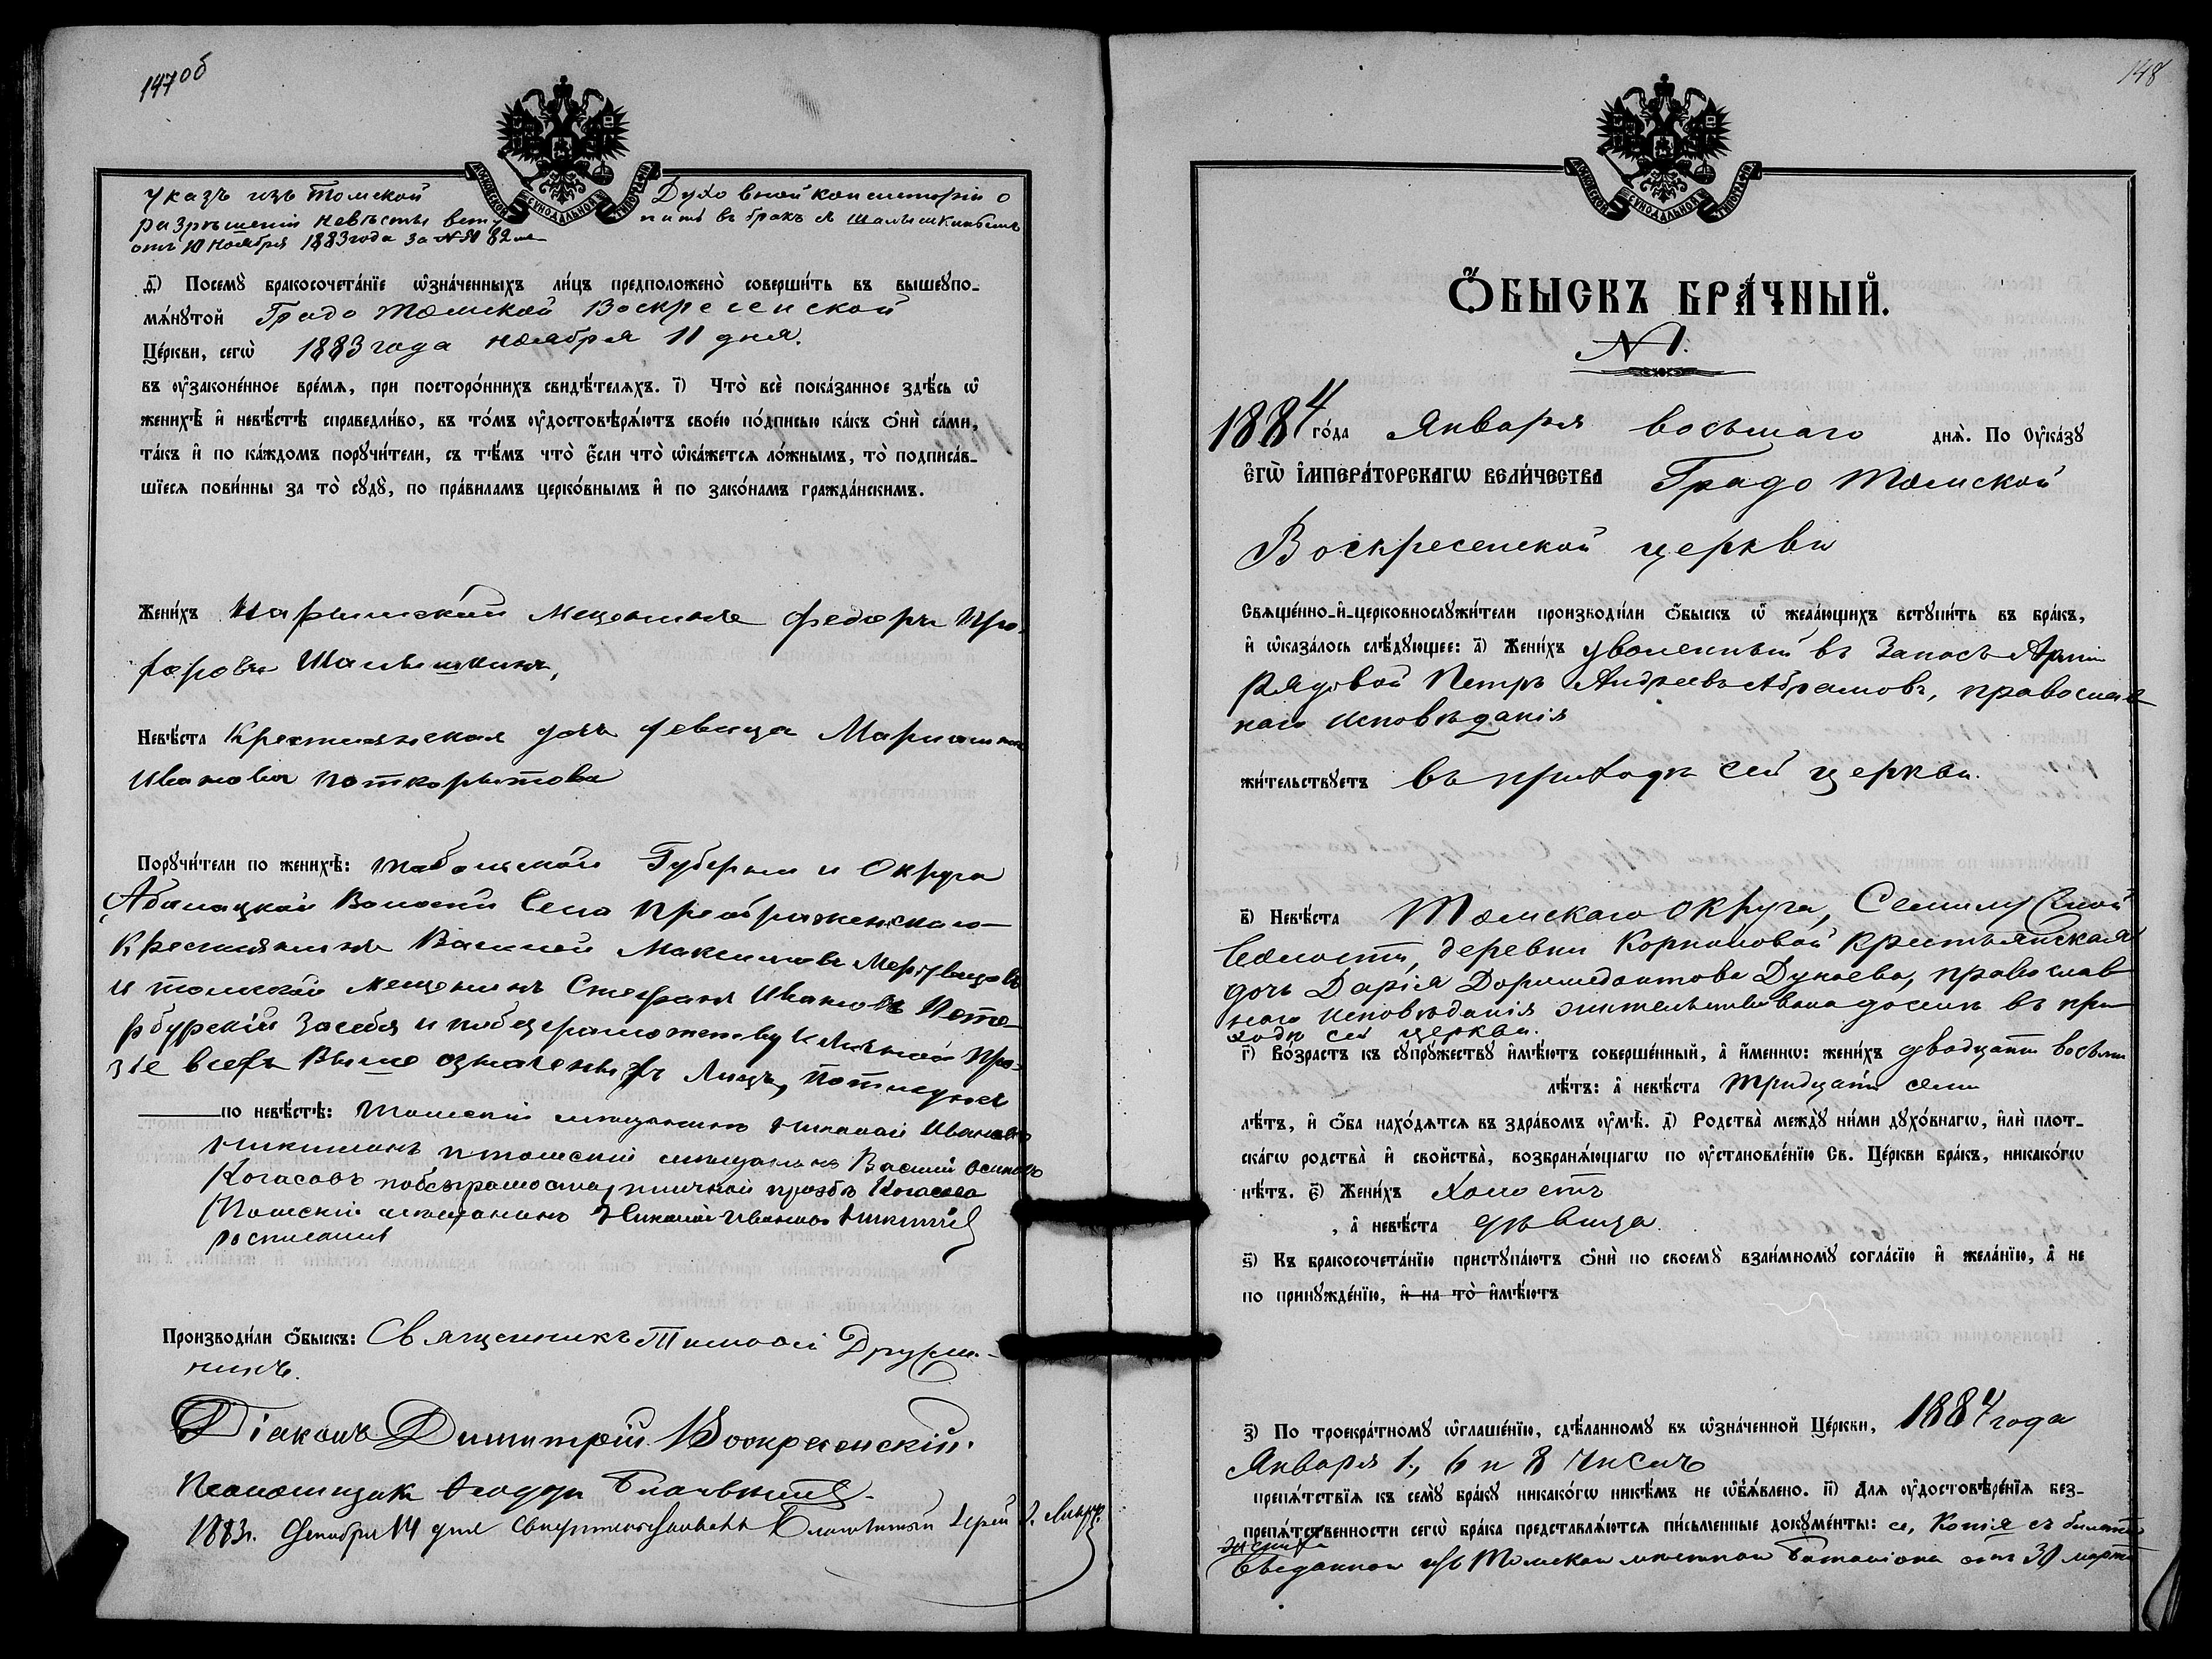 147об
Указъ изъ Томской Духовной консисторіи о
разрѣшеніи невѣсты всту пить въ бракъ съ Шалышкинымъ
отъ 10 Ноября 1883 года за №
МОСКОВСКОЙ СѴНОДАЛЬНОЙ ТИПОГРАФІИ
д҃і) Посемꙋ̀ бракосочета́нїе ѡ҆зна́ченныхъ ли́цъ предположено̀ соверши́ть въ вышеꙋпо-
мѧ́нꙋтой Градо Томской Воскресенской
Це́ркви, сегѡ̀ 1883 года ноября 11 дня.
въ ᲂу҆законе́нное вре́мѧ, при посторо́ннихъ свидѣ́телѧхъ. і҃) Что̀ всѐ пока́занное здѣ́сь ѡ҆
женихѣ̀ и҆ невѣ́стѣ справедли́во, въ то́мъ ᲂу҆достовѣрѧ́ютъ свое́ю по́дписью ка́къ ѻ҆нѝ са́ми,
та́къ и҆ по ка́ждомъ порꙋчи́тели, съ тѣ́мъ что̀ є҆́сли что̀ ѡ҆ка́жетсѧ ло́жнымъ, то̀ подписа́в-
шїесѧ пови́нны за то̀ сꙋдꙋ̀, по пра́виламъ церко́внымъ и҆ по зако́намъ гражда́нскимъ.
Жени́хъ Нарымскій Мещанинъ Федоръ Про-
форовъ Шалышкинъ,
Невѣ́ста Крестьянская дочь девица
Иванова Поткорытова
Порꙋчи́тели по женихѣ̀: Тобольской Губернии и Округа
Абалацкой Волости Села Преображенского
Крестьянинъ Василей Максимовъ
и томской мещенинъ Стефанъ Ивановъ Пете-
рбурскій засебя и побезграмотству и личной про-
збе всехъ Выше означеныхъ Лицъ,
по невѣ́стѣ: Томскій мѣщанинъ Николай Ивановъ
Никитинъ и томскій мѣщанинъ Василій Осиповъ
Когасовъ побезграмотству, и личной прозбѣ Когасова
Томскій мѣщанинъ Николай Ивановъ Никитинъ
росписался
Производи́ли ѻ҆́быскъ: Священникъ Тимоѳей
никъ.
Діаконъ Димитрій Воскресенскій.
Псаломщикъ
1883г. Декабря 14 дня свидетельствовалъ Благочинный Іерей
148
МОСКОВСКОЙ СѴНОДАЛЬНОЙ ТИПОГРАФІИ
Ѻ҆́БЫСКЪ БРА́ЧНЫЙ.
№ 1.
1884 го́да Января восьмаго днѧ̀. По ᲂу҆ка́зꙋ
Є҆ГѠ̀ І҆МПЕРА́ТОРСКАГѠ ВЕЛИ́ЧЕСТВА Градо Томской
Воскресенской церкви
Свѧще́нно-и҆-церковнослꙋжи́тели производи́ли ѻ҆́быскъ ѡ҆ жела́ющихъ встꙋпи́ть въ бра́къ,
и҆ ѡ҆каза́лось слѣ́дꙋющее: а҃) Жени́хъ уволенный въ Запасъ Арміи
Рядовой Петръ Андреевъ Абрамовъ, православ
наго исповѣданія
жи́тельствꙋетъ въ приходѣ сей церкви.
в҃) Невѣ́ста Томскаго округа, Семилужной
Волости, деревни Корниловой крестьянская
дочь Дарія Доримедонтова Дунаева, православ
наго исповѣданія жительствовала доселѣ въ при
ходѣ сей церкви.
г҃) Во́зрастъ къ сꙋпрꙋ́жествꙋ и҆мѣ́ютъ соверше́нный, а҆ и҆́меннѡ: жени́хъ двадцати восьми
лѣ́тъ: а҆ невѣ́ста тридцати семи
лѣ́тъ, и҆ ѻ҆́ба нахо́дѧтсѧ въ здра́вомъ ᲂу҆мѣ̀. д҃) Родства̀ междꙋ̀ ни́ми дꙋхо́внагѡ, и҆лѝ пло́т-
скагѡ родства̀ и҆ сво́йства, возбранѧ́ющагѡ по ᲂу҆становле́нїю Св. Це́ркви бра́къ, никако́гѡ
нѣ́тъ. є҃) Жени́хъ холостъ
, а҆ невѣ́ста дѣвица.
ѕ҃) Къ бракосочета́нїю пристꙋпа́ютъ ѻ҆нѝ по своемꙋ̀ взаи́мномꙋ согла́сїю и҆ жела́нїю, а҆ не
по принꙋжде́нїю, и҆ на то̀ и҆мѣ́ютъ
з҃) По троекра́тномꙋ ѡ҆глаше́нїю, сдѣ́ланномꙋ въ ѡ҆зна́ченной Це́ркви, 1884 года
Января 1, 6 и 8 чиселъ
препѧ́тствїѧ къ семꙋ̀ бра́кꙋ никако́гѡ никѣ́мъ не ѡ҆б̾ѧ́влено. и҃) Длѧ ᲂу҆достовѣре́нїѧ без-
препѧ́тственности сегѡ̀ бра́ка представлѧ́ютсѧ пи́сьменные докꙋме́нты: Копія съ билета
жениха
выданной изъ Томскаго мѣстнаго баталіона отъ 30 марта